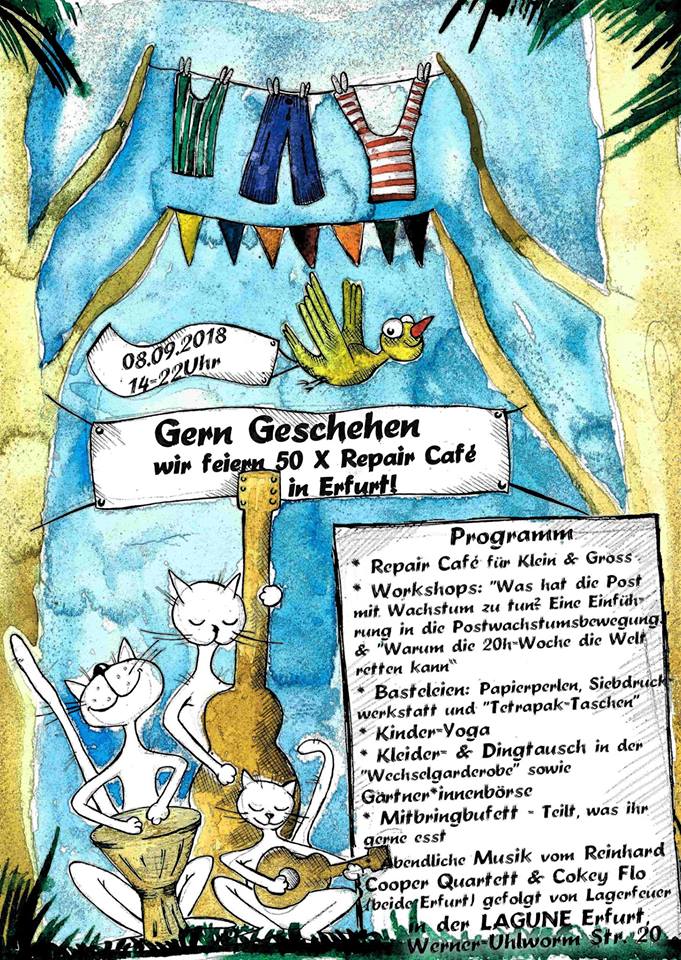 08.09.2018
14-22Uhr
Gern Geschehen
wir feiern 50 X Repair Café
in Erfurt!
Programm
* Repair Café für Klein & Gross
* Workshops: "Was hat die Post
mit Wachstum zu tun? Eine Einfüh-
rung in die Postwachstumsbewegung"
& "Warum die 20h-Woche die Welt
retten kann"
* Basteleien: Papierperlen, Siebdruck-
werkstatt und "Tetrapak-Taschen"
* Kinder-Yoga
* Kleider- & Dingtausch in der
"Wechselgarderobe" sowie
Gärtner*innenbörse
* Mitbringbufett - Teilt, was ihr
gerne esst
Abendliche Musik vom Reinhard
Cooper Quartett & Cokey Flo
(beide Erfurt) gefolgt von Lagerfeuer
in der LAGUNE Erfurt,
Werner-Uhlworm Str. 20